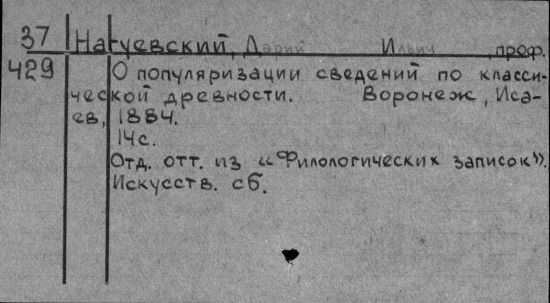 37 Нагуевский, Дарий Ильич, проф.
429 О популяризации сведений по класси-
ческой древности. Воронеж, Иса-
ев, 1884.
14 с.
Отд. отт. из "Филологических записок".
Искусств. сб.